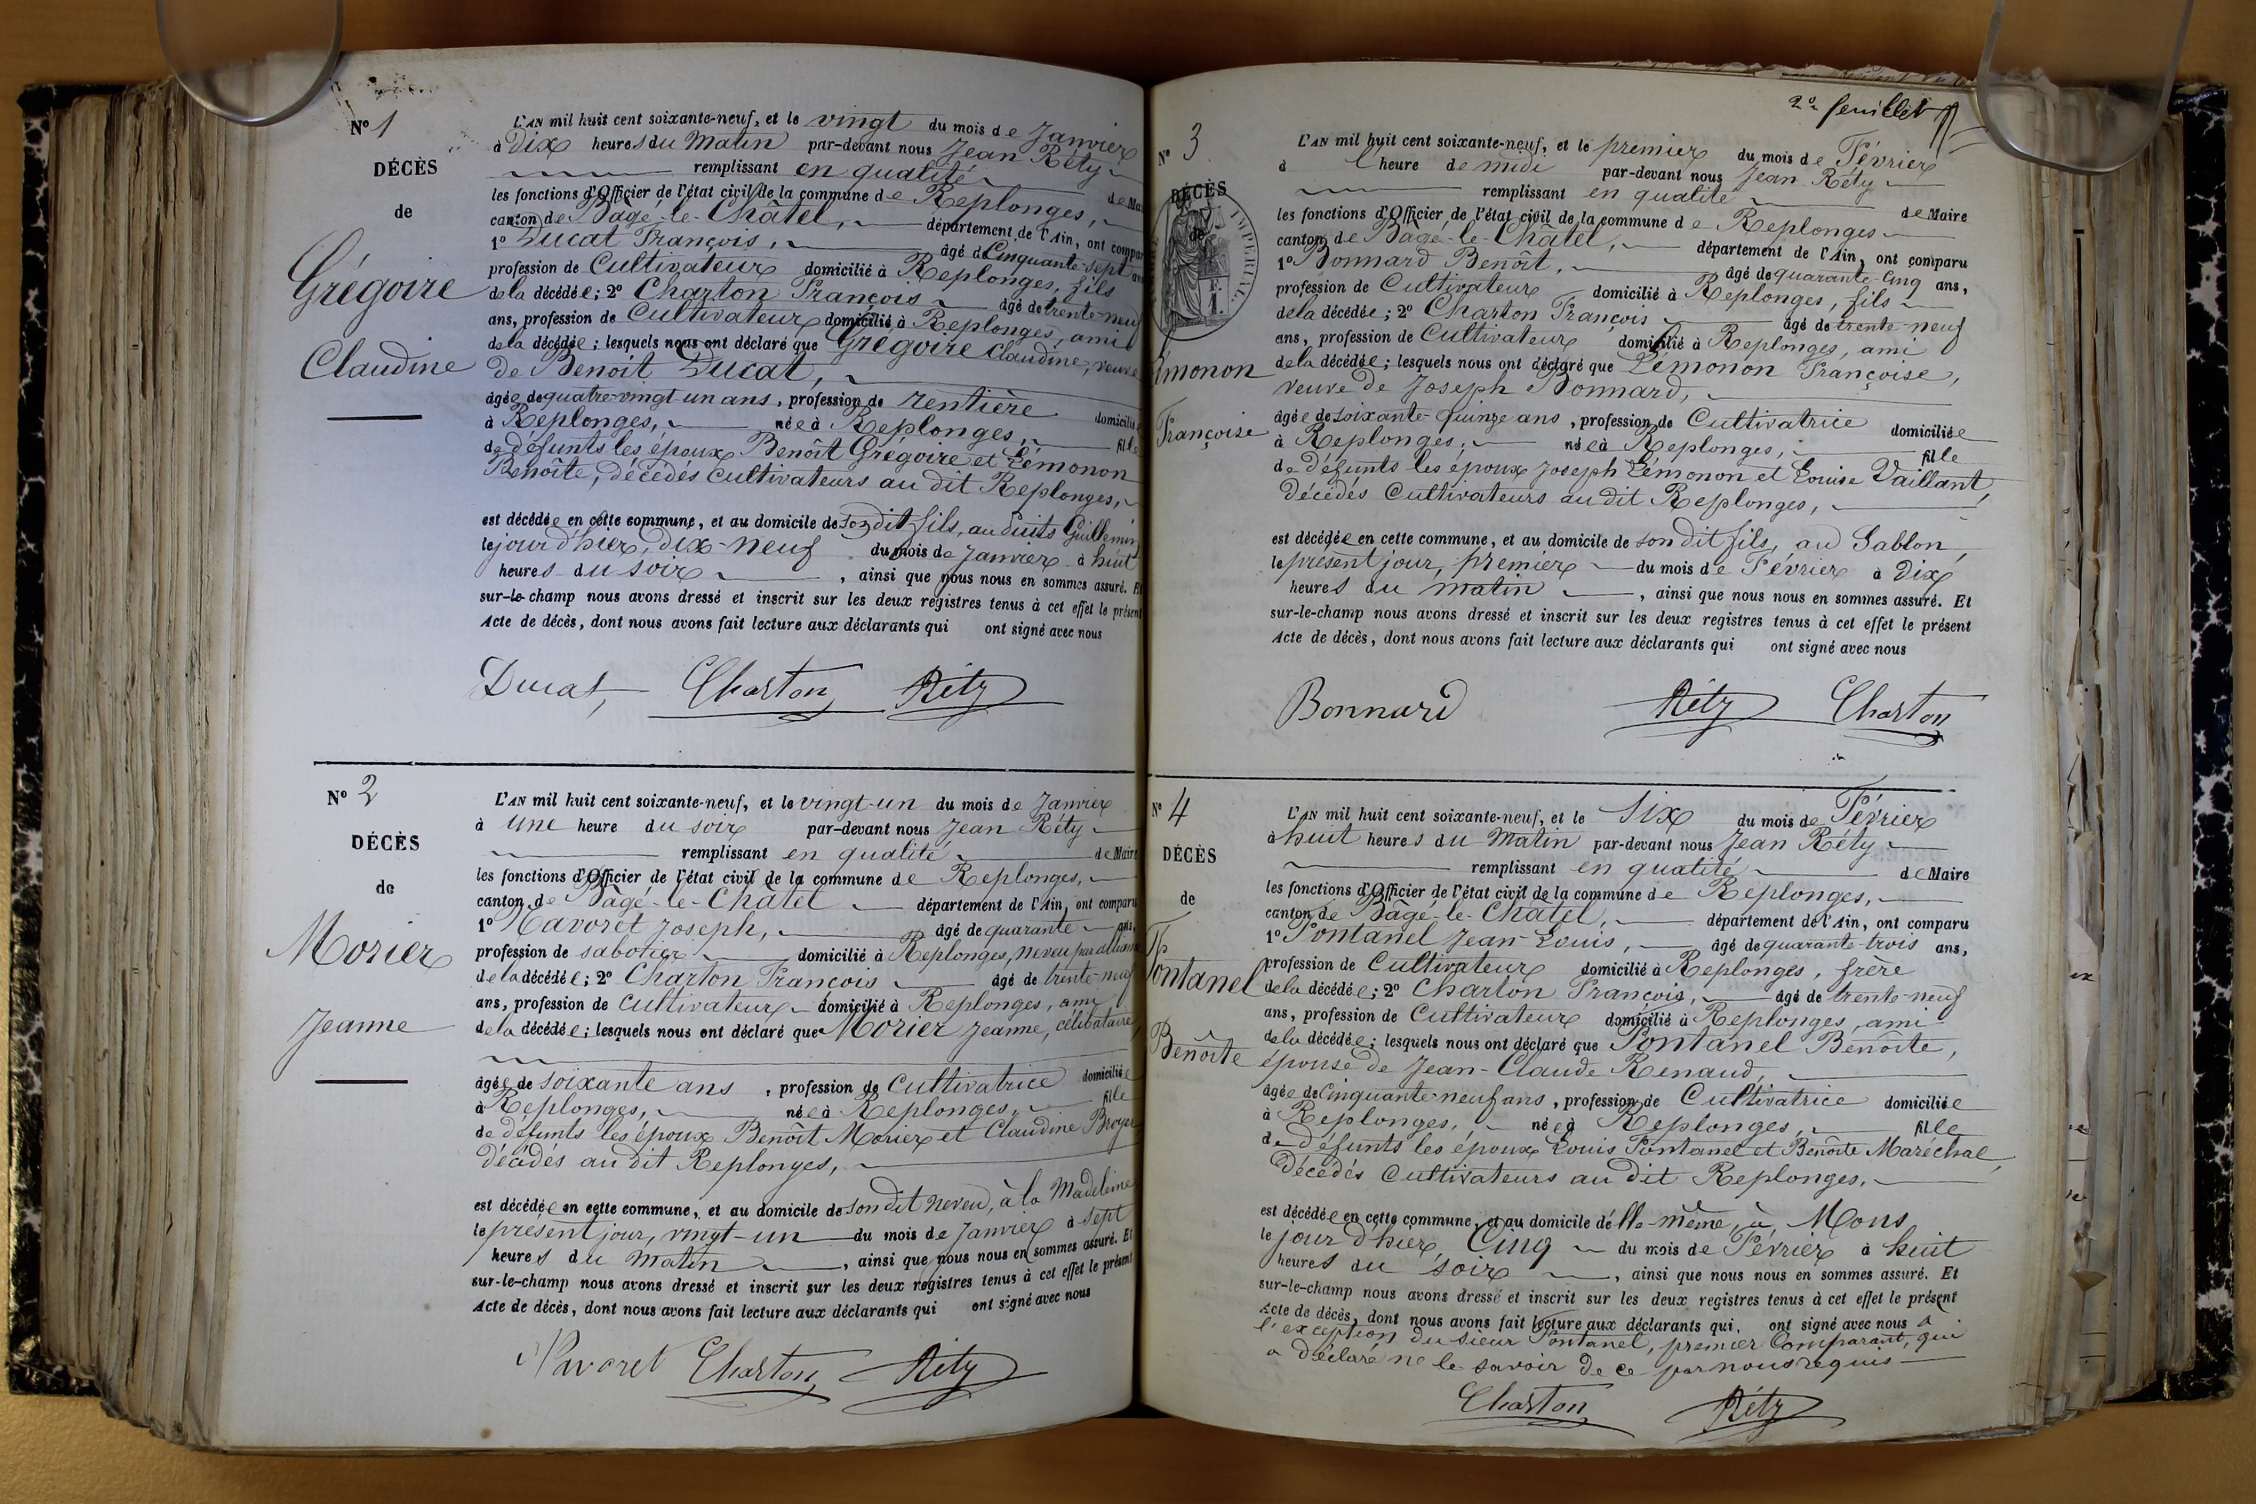 Nº 1
DÉCÈS
de
Grégoire
Claudine
L'AN mil huit cent soixante-neuf, et le vingt du mois de Janvier
à Dix heures du Matin par-devant nous Jean Réty
remplissant en qualité de Mai
les fonctions d'Officier de l'état civil de la commune de Replonges,
canton de Bâgé-le-Châtel, département de l'Ain, ont compar
1º Ducat François, âgé de Cinquante-sept ans
profession de Cultivateur domicilié à Replonges, fils
de la décédée; 2º Charton François âgé de trente-neuf
ans, profession de Cultivateur domicilié à Replonges, ami
de la décédée; lesquels nous ont déclaré que Grégoire Claudine, veuve
de Benoit Ducat,
âgée de quatre-vingt-un ans, profession de rentière domiciliée
à Replonges, née à Replonges, fille
de défunts les époux Benoît Grégoire et Lémonon
Benoîte, décédés cultivateurs au dit Replonges,
est décédée en cette commune, et au domicile de son dit fils, au Puits Guillemin
le jour d'hier, dix-neuf du mois de Janvier à huit
heures du soir, ainsi que nous nous en sommes assuré. Et
sur-le-champ nous avons dressé et inscrit sur les deux registres tenus à cet effet le présent
Acte de décès, dont nous avons fait lecture aux déclarants qui ont signé avec nous
Ducat Charton Réty
Nº 2
DÉCÈS
de
Morier
Jeanne
L'AN mil huit cent soixante-neuf, et le vingt-un du mois de Janvier
à Une heure du soir par-devant nous Jean Réty
remplissant en qualité de Maire
les fonctions d'Officier de l'état civil de la commune de Replonges,
canton de Bâgé-le-Châtel département de l'Ain, ont comparu
1º Navoret Joseph, âgé de quarante ans,
profession de sabotier domicilié à Replonges, neveu par alliance
de la décédée; 2º Charton François âgé de trente-neuf
ans, profession de Cultivateur domicilié à Replonges, ami
de la décédée; lesquels nous ont déclaré que Morier Jeanne, célibataire,
âgée de soixante ans, profession de Cultivatrice domiciliée
à Replonges, née à Replonges, fille
de défunts les époux Benoît Morier et Claudine Broyer
décédés au dit Replonges,
est décédée en cette commune, et au domicile de son dit neveu, à la Madeleine
le présent jour, vingt-un du mois de Janvier à sept
heures du matin, ainsi que nous nous en sommes assuré. Et
sur-le-champ nous avons dressé et inscrit sur les deux registres tenus à cet effet le présent
Acte de décès, dont nous avons fait lecture aux déclarants qui ont signé avec nous
Navoret Charton Réty
2e feuillet
Nº 3
DÉCÈS
de
IMPERIAL
F.
1.
Lémonon
Françoise
L'AN mil huit cent soixante-neuf, et le premier du mois de Février
à l'heure de midi par-devant nous Jean Réty
remplissant en qualité de Maire
les fonctions d'Officier de l'état civil de la commune de Replonges
canton de Bâgé-le-Châtel, département de l'Ain, ont comparu
1º Bonnard Benoît, âgé de quarante-cinq ans,
profession de Cultivateur domicilié à Replonges, fils
de la décédée; 2º Charton François âgé de trente-neuf
ans, profession de Cultivateur domicilié à Replonges, ami
de la décédée; lesquels nous ont déclaré que Lémonon Françoise,
veuve de Joseph Bonnard,
âgée de soixante-quinze ans, profession de Cultivatrice domiciliée
à Replonges, née à Replonges, fille
de défunts les époux Joseph Lémonon et Louise Vaillant,
décédés Cultivateurs au dit Replonges,
est décédée en cette commune, et au domicile de son dit fils, au Sablon,
le présent jour, premier du mois de Février à Dix
heures du matin, ainsi que nous nous en sommes assuré. Et
sur-le-champ nous avons dressé et inscrit sur les deux registres tenus à cet effet le présent
Acte de décès, dont nous avons fait lecture aux déclarants qui ont signé avec nous
Bonnard Réty Charton
Nº 4
DÉCÈS
de
Fontanel
Benoîte
L'AN mil huit cent soixante-neuf, et le six du mois de Février
à huit heures du Matin par-devant nous Jean Réty
remplissant en qualité de Maire
les fonctions d'Officier de l'état civil de la commune de Replonges,
canton de Bâgé-le-Châtel, département de l'Ain, ont comparu
1º Fontanel Jean-Louis, âgé de quarante-trois ans,
profession de Cultivateur domicilié à Replonges, frère
de la décédée; 2º Charton François, âgé de trente-neuf
ans, profession de Cultivateur domicilié à Replonges, ami
de la décédée; lesquels nous ont déclaré que Fontanel Benoîte,
épouse de Jean-Claude Renaud,
âgée de Cinquante-neuf ans, profession de Cultivatrice domiciliée
à Replonges, née à Replonges, fille
de défunts les époux Louis Fontanel et Benoîte Maréchal,
décédés Cultivateurs au dit Replonges,
est décédée en cette commune, et au domicile d'elle-même, à Mons
le jour d'hier, Cinq du mois de Février à huit
heures du soir, ainsi que nous nous en sommes assuré. Et
sur-le-champ nous avons dressé et inscrit sur les deux registres tenus à cet effet le présent
Acte de décès, dont nous avons fait lecture aux déclarants qui ont signé avec nous à
l'exception du sieur Fontanel, premier Comparant, qui
a déclaré ne le savoir de ce par nous requis
Charton Réty